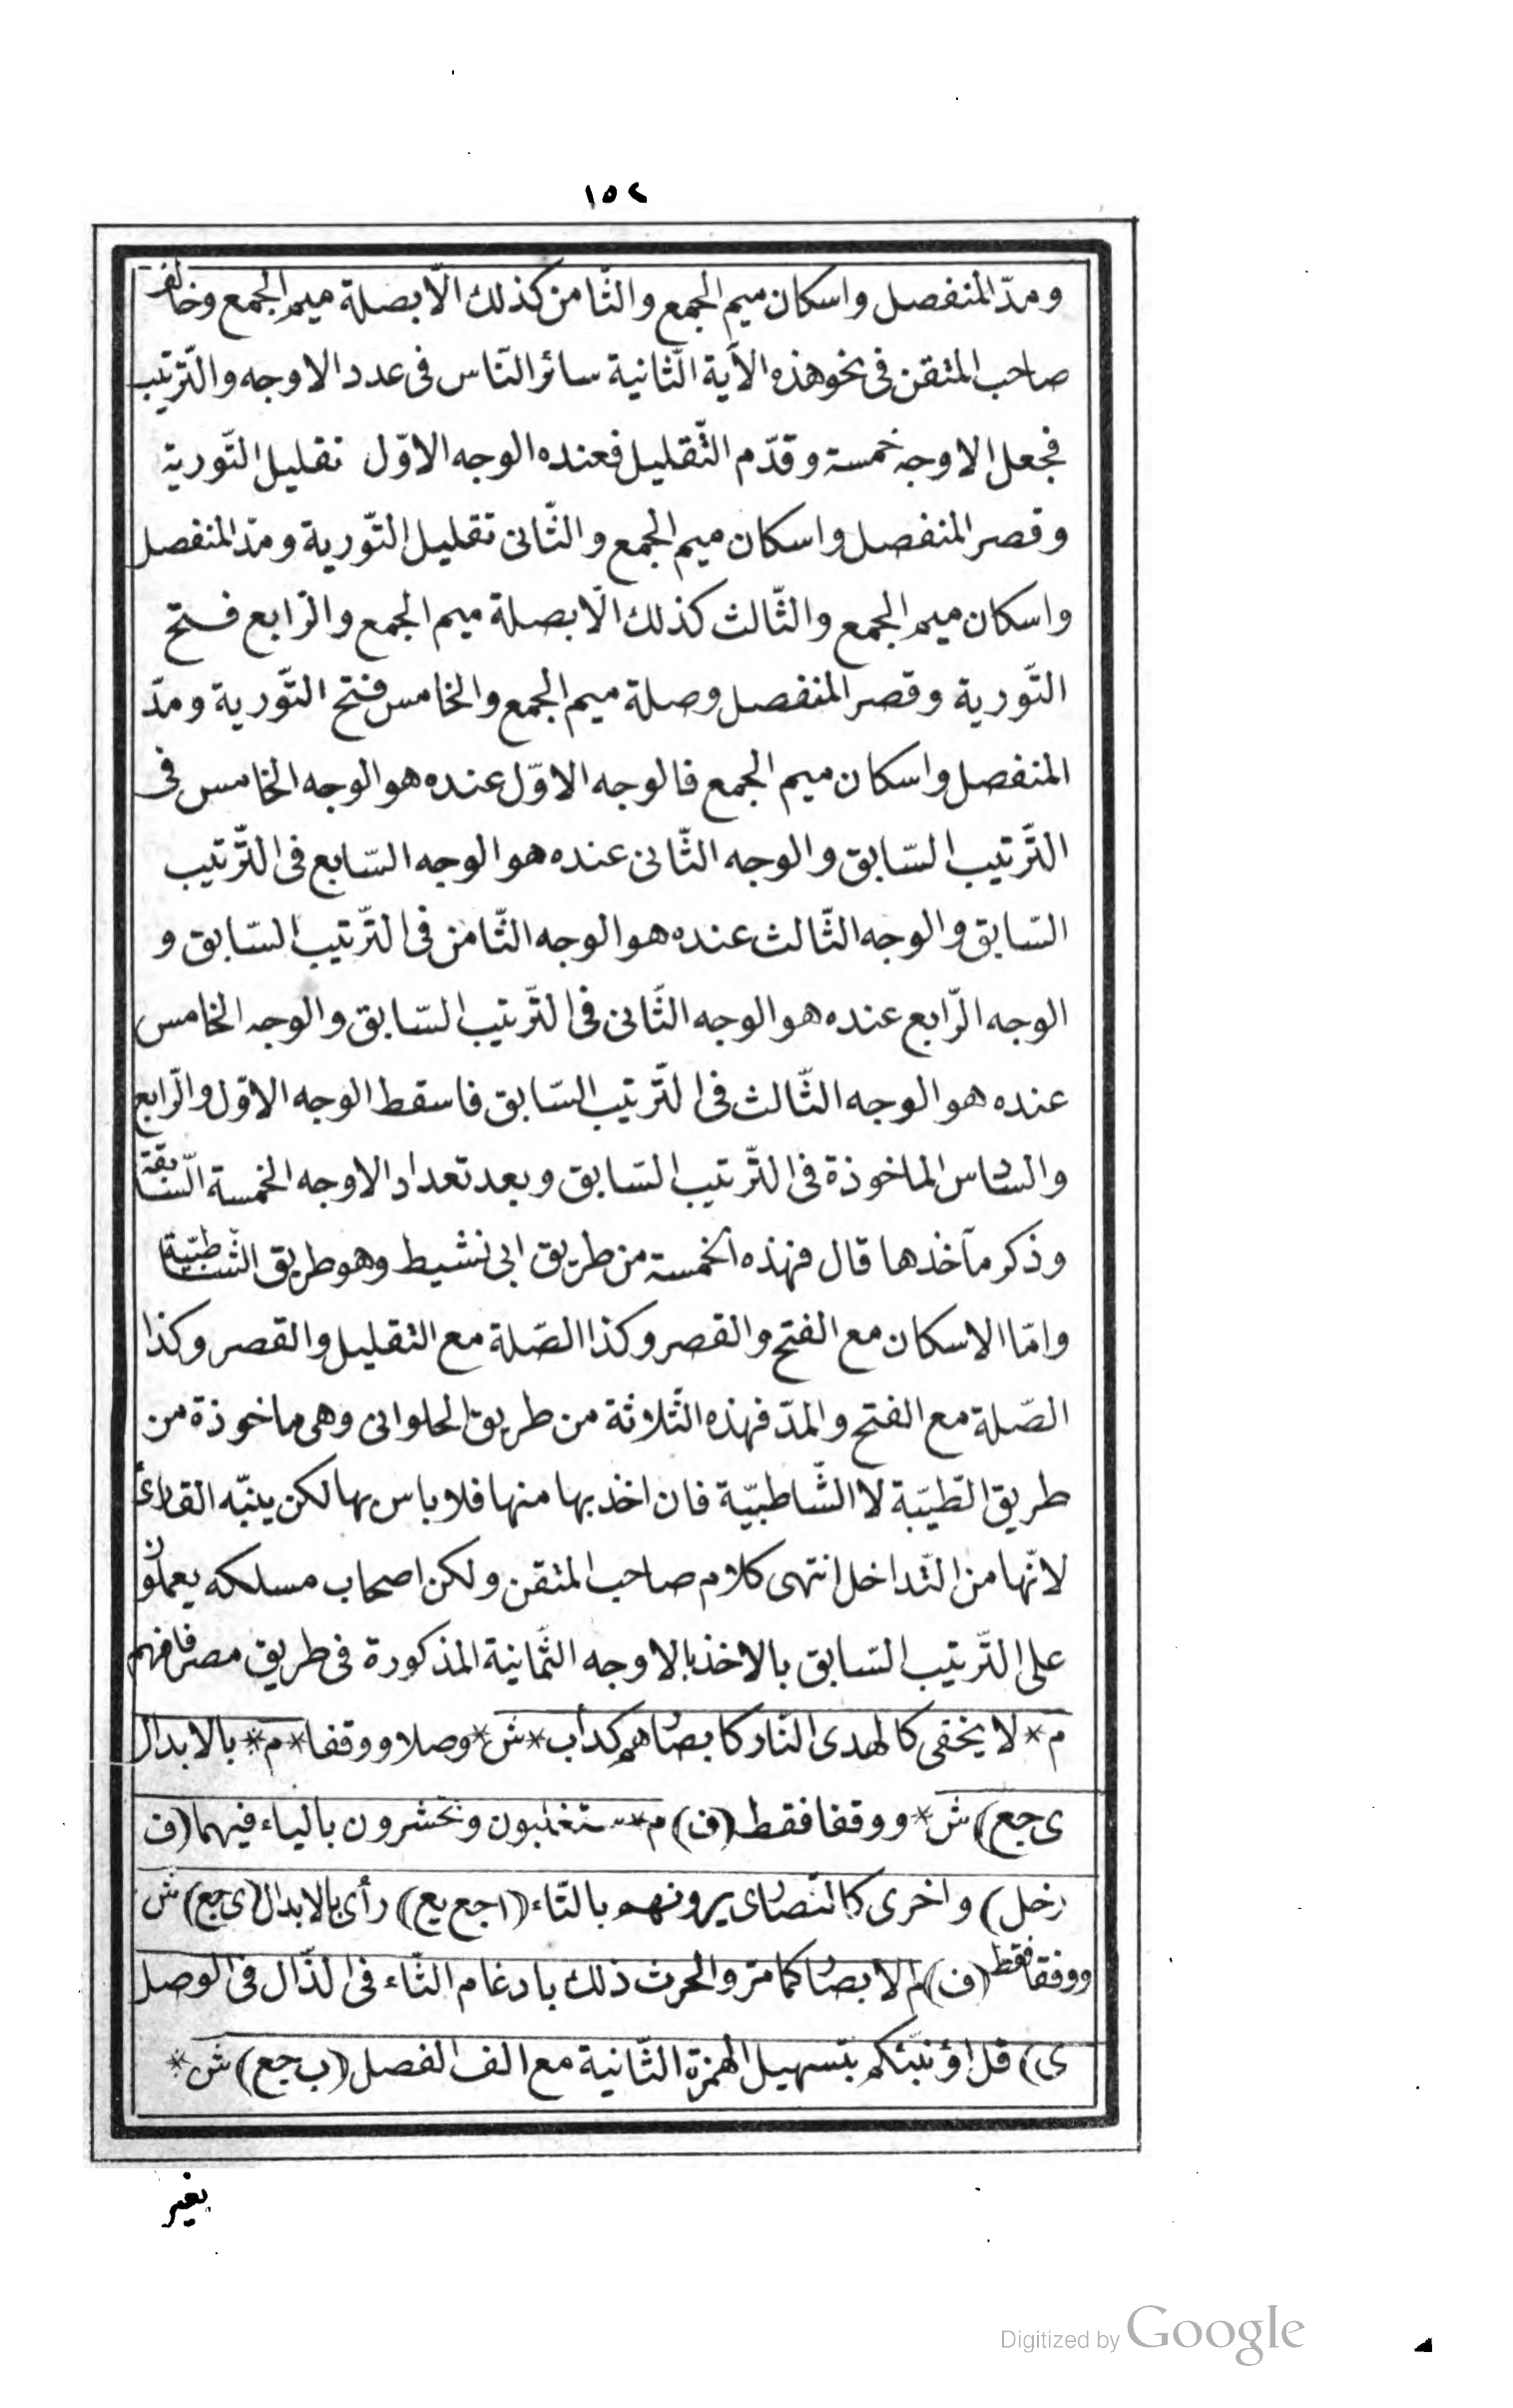 ١٥٢
ومدّ المنفصل واسكان ميم الجمع والثّامن كذلك الّا بصلة ميم الجمع وخالف
صاحب المتقن فى نحو هذه الآية الثّانية سائر النّاس فى عدد الاوجه والتّرتيب
فجعل الاوجه خمسة وقدّم التّقليل فعنده الوجه الاوّل تقليل التّورية
وقصر المنفصل واسكان ميم الجمع والثّانى تقليل التّورية ومدّ المنفصل
واسكان ميم الجمع والثّالث كذلك الّا بصلة ميم الجمع والرّابع فتح
التّورية وقصر المنفصل وصلة ميم الجمع والخامس فتح التّورية ومدّ
المنفصل واسكان ميم الجمع فالوجه الاوّل عنده هو الوجه الخامس فى
التّرتيب السّابق والوجه الثّانى عنده هو الوجه السّابع فى التّرتيب
السّابق والوجه الثّالث عنده هو الوجه الثّامن فى التّرتيب السّابق و
الوجه الرّابع عنده هو الوجه الثّانى فى التّرتيب السّابق والوجه الخامس
عنده هو الوجه الثّالث فى التّرتيب السّابق فاسقط الوجه الاوّل والرّابع
والسّادس الماخوذة فى التّرتيب السّابق وبعد تعداد الاوجه الخمسة السّابقة
وذكر مآخذها قال فهذه الخمسة من طريق ابى نشيط وهو طريق الشّاطبيّة
وامّا الاسكان مع الفتح والقصر وكذا الصّلة مع التقليل والقصر وكذا
الصّلة مع الفتح والمدّ فهذه الثّلاثة من طريق الحلوانى وهى ماخوذة من
طريق الطّيّبة لا الشّاطبيّة فان اخذ بها منها فلا باس بها لكن ينبّه القارئ
لانّها من التّداخل انتهى كلام صاحب المتقن ولكن اصحاب مسلكه يعملون
على التّرتيب السّابق بالاخذ بالاوجه الثّمانية المذكورة فى طريق مصر فافهم
م* لا يخفى كالهدى النّار كابصارهم كدأب* ش* وصلا ووقفا* م* بالابدال
ى جع) ش* ووقفا فقط (ف) م* ستغلبون وتحشرون بالياء فيهما (ف
رخل) واخرى كالنّصارى يرونهم بالتّاء (ا جع يع) رأى بالابدال (ى جع) ش
ووقفا فقط (ف) م الابصار كما مرّ والحرث ذلك بادغام الثّاء فى الذّال فى الوصل
ى) قل اؤنبّئكم بتسهيل الهمزة الثّانية مع الف الفصل (ب جع) ش*
بغير
Digitized by Google